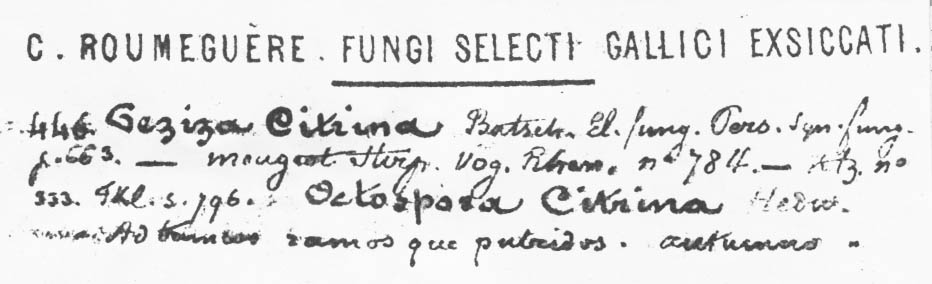 C. ROUMEGUÈRE. FUNGI SELECTI GALLICI EXSICCATI.
446. Peziza Citrina Batsch. El. fung. Pers. Syn. fung.
p. 663. — Mougeot Stirp. Vog. Rhen. n° 784. — n°
333. Fkl. s. 796. Octospora Citrina Hedw.
Ad truncos ramosque putridos. autumno